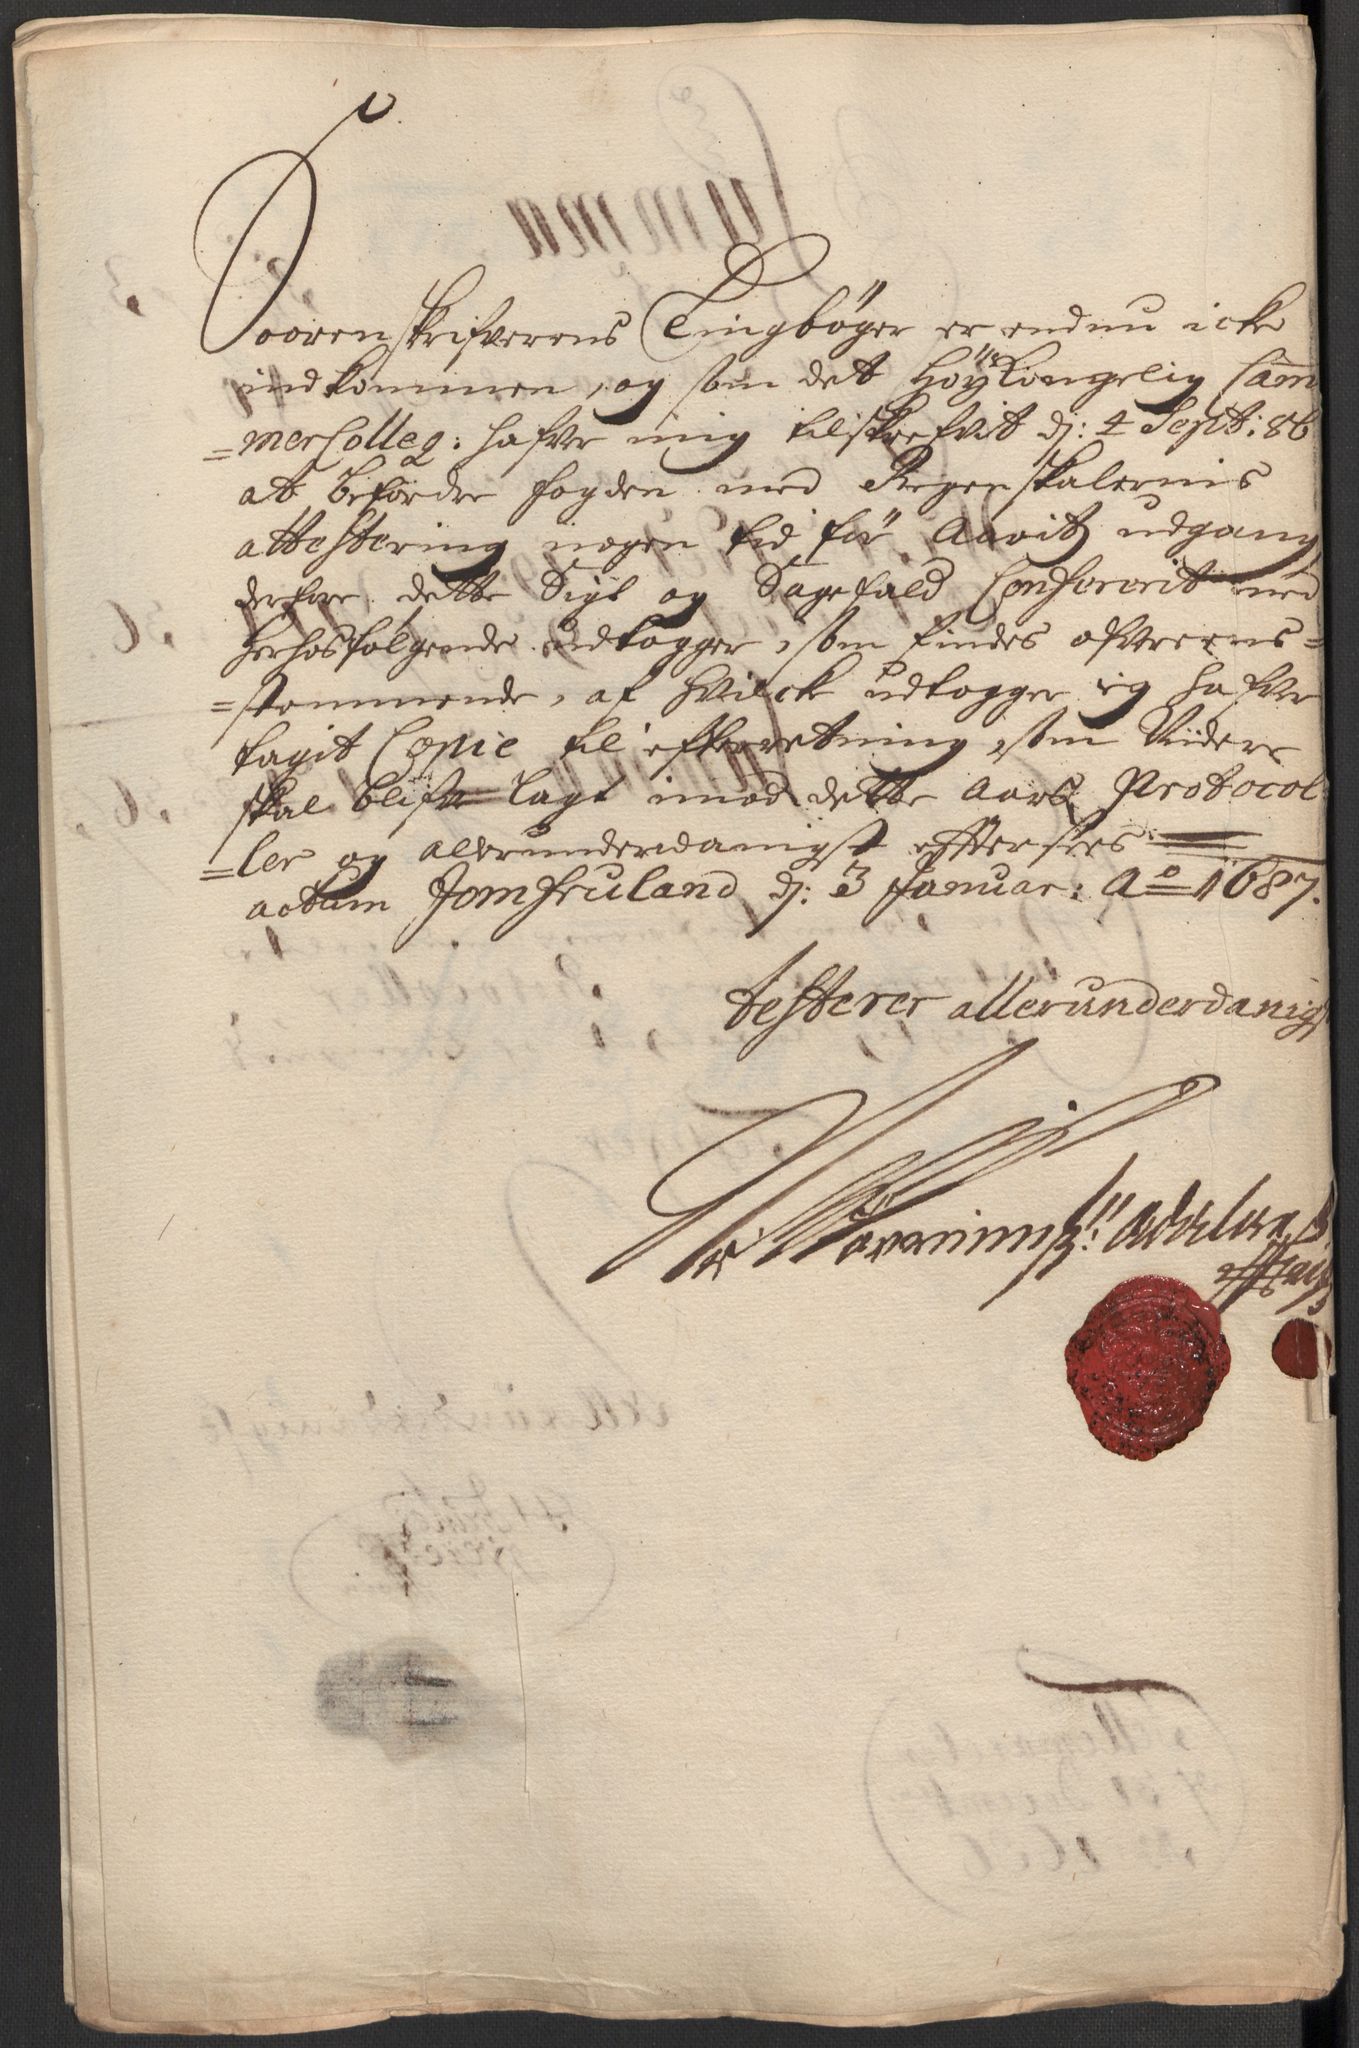 Soorenskrifverens Tingbøger er endnu icke
indkommen, og som det Høÿkongelig Cam
=merColleg: hafver mig tilskrefvit dj: 4 Sept: 86
at befordre fogden med Regenskabernis
attestering nogen tid før Aarits udgang
derfore dette Sigt og Sagefald Confererit med
herhosfølgende udtogger, som findes ofvereens=
=stemmende, af hvilcke udtogger ieg hafver
tagit Copie til efterretning, som Videre
skal blifve lagt imod dette Aars Protocol
=ler og allerunderdanigst efftersees
actum Jomfruland dj: 3 Januar: Ao 1687.
testerer allerunderdanigst